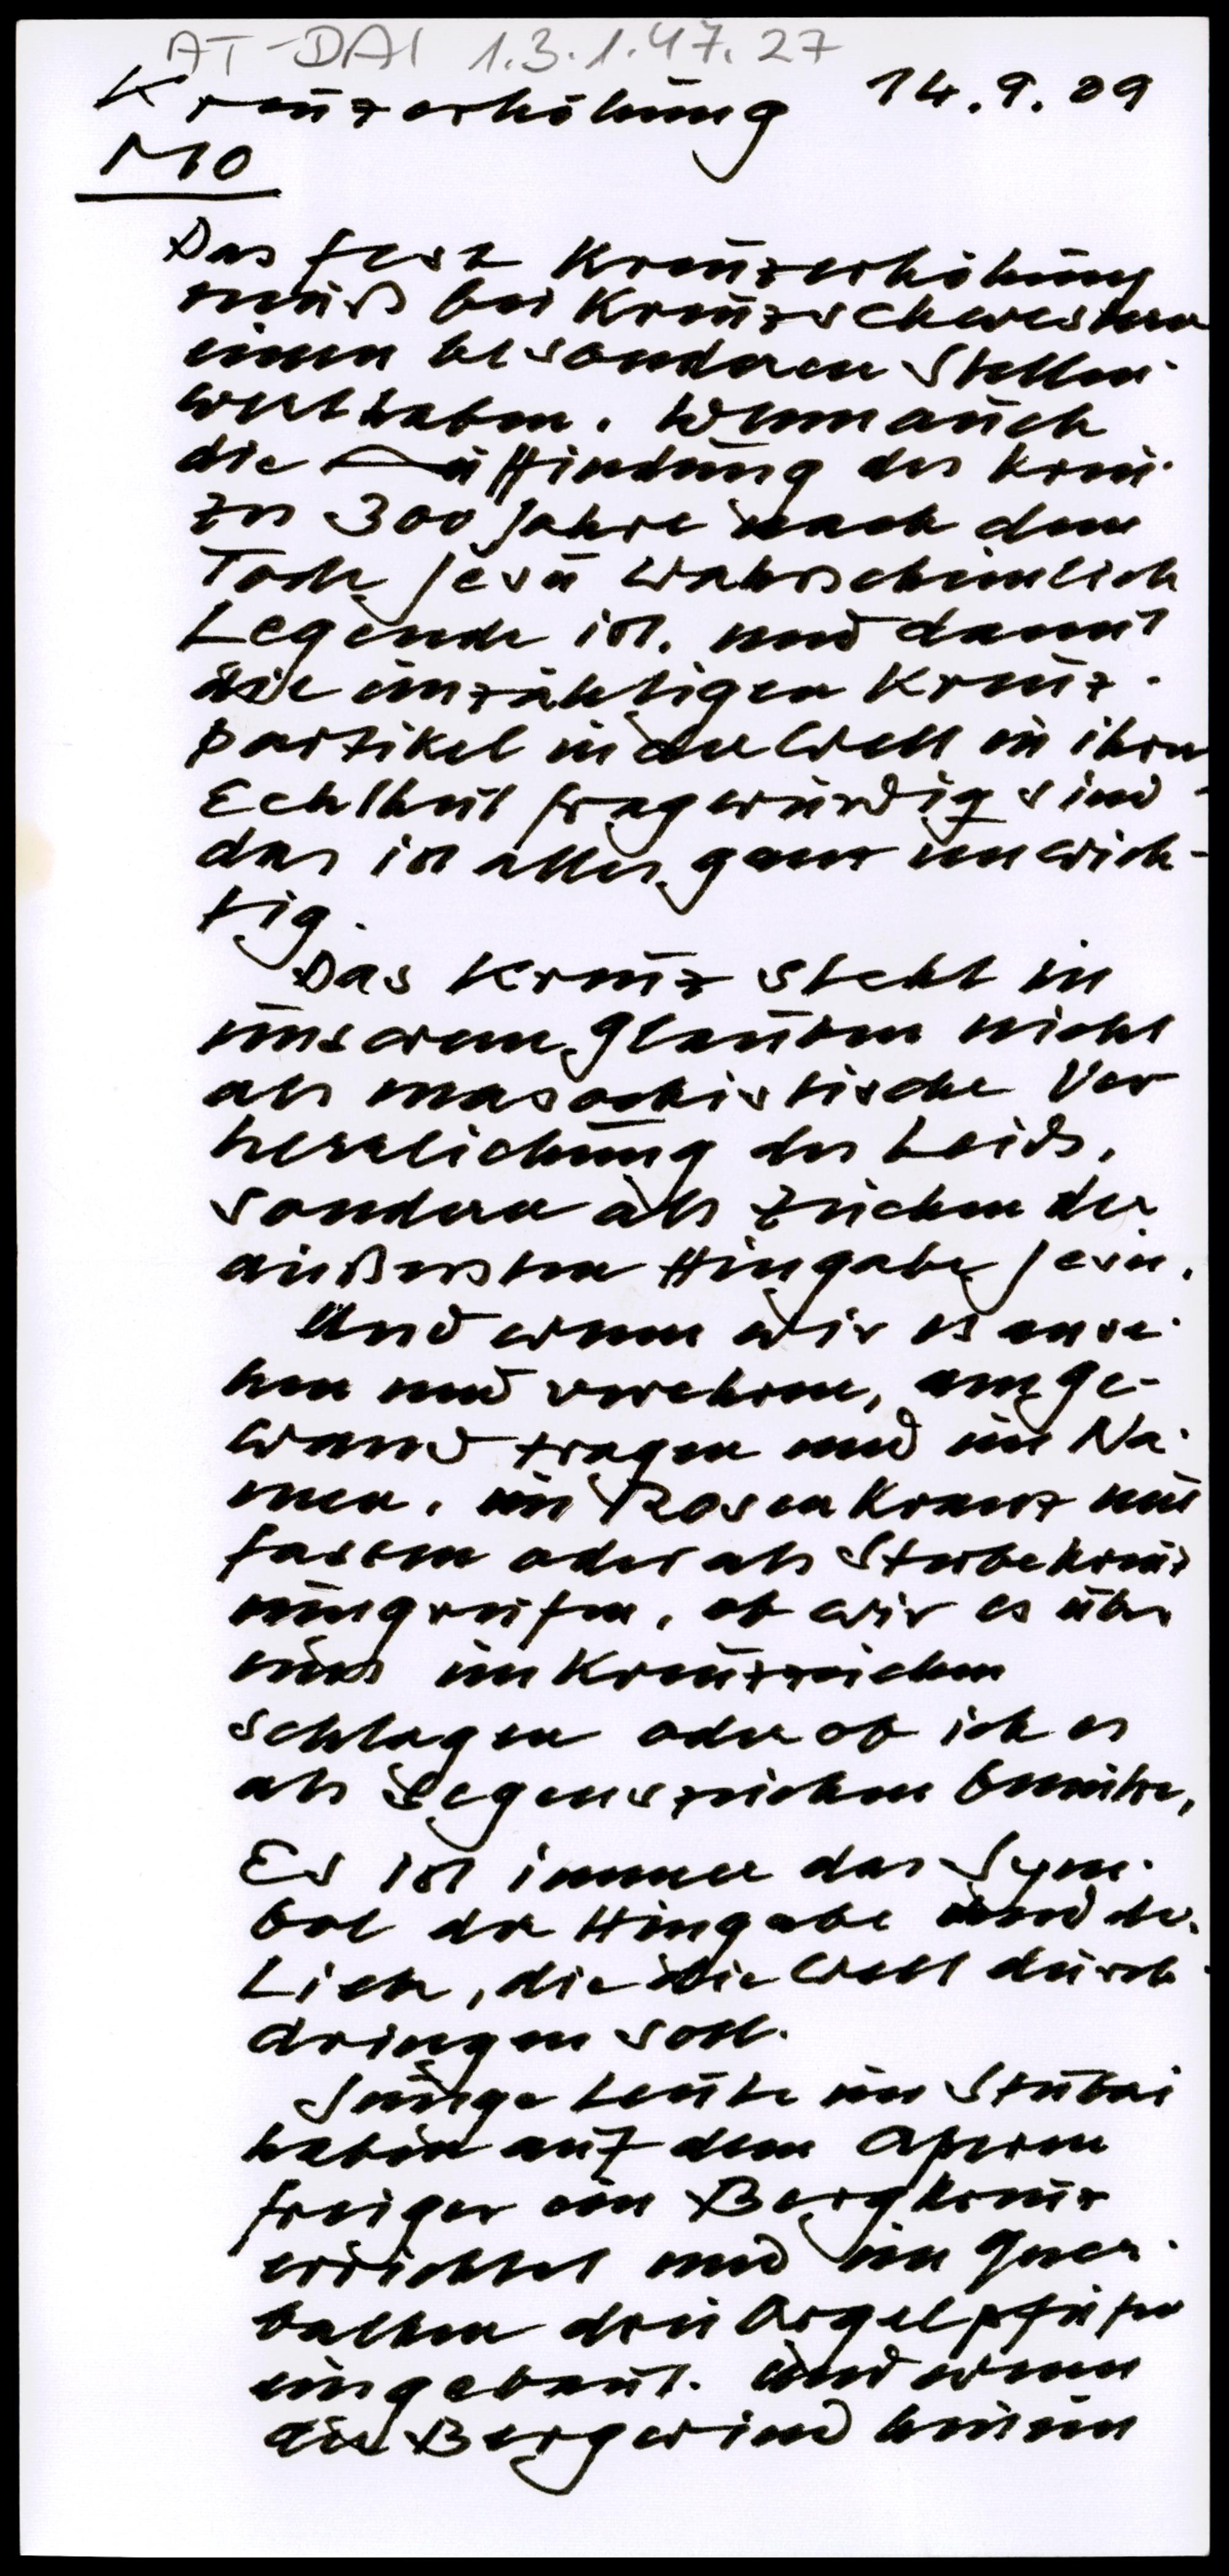 AT-DAI 1.3.1.47.27
Kreuzerhöhung 14.9.09
MO
Das Fest Kreuzerhöhung
muß bei Kreuzschwestern
einen besonderen Stellen-
wert haben. Wenn auch
die Auffindung des Kreu-
zes 300 Jahre nach dem
Tode Jesu wahrscheinlich
Legende ist. und damit
die unzähligen Kreuz-
partikel in der Welt in ihrer
Echtheit fragwürdig sind -
das ist alles ganz unwich-
tig.
Das Kreuz steht in
unserem Glauben nicht
als masochistische Ver
herrlichung des Leids,
sondern als Zeichen der
äußersten Hingabe Jesu.
Und wenn wir es anse-
hen und verehren, am Ge-
wand tragen und im Na-
men, im Rosenkranz mit
fassen oder als Sterbekreuz
umgreifen, ob wir es über
uns im Kreuzzeichen
schlagen oder ob ich es
als Segenszeichen benütze,
Es ist immer das Sym-
bol der Hingabe und der
Liebe, die die Welt durch-
dringen soll.
Junge Leute im Stubai
haben auf dem Aperen
Freiger ein Bergkreuz
errichtet und im Quer-
balken drei Orgelpfeifen
eingebaut. Und wenn
die Bergwind hinein